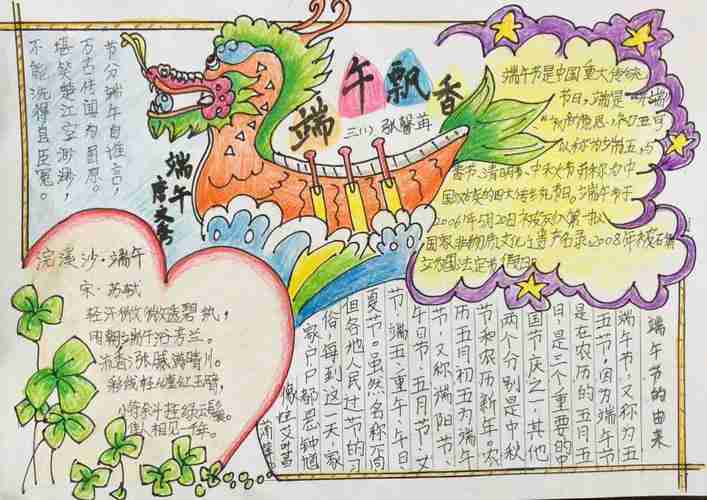 端午飘香
三(1) 张馨
端午
唐 文秀
节分端午自谁言，
万古传闻为屈原。
堪笑楚江空渺渺，
不能洗得直臣冤。
端午节是中国重大传统
节日，"端"是"开端"
"初"的意思，初五可
以称为端五，与
春节、清明节、中秋节并称为中
国汉族的四大传统节日。端午节于
2006年5月20日被列入第一批
国家非物质文化遗产名录，2008年被
立为国家法定节假日。
浣溪沙·端午
宋·苏轼
轻汗微微透碧纨，
明朝端午浴芳兰。
流香涨腻满晴川。
彩线轻缠红玉臂，
小符斜挂绿云鬟。
佳人相见一千年。
端午节的由来
端午节，又称为五
五节，因为端午节
是在农历的五月五
日，是三个重要的中
国节庆之一，其他
两个分别是中秋
节和农历新年。农
历五月初五为端午
节，又称端阳节、
午日节、五月节、艾
节、端五、重午、午日、
夏节。虽然名称不同
但各地人民过节的习
俗，每到这一天，家
家户户都悬钟馗
像，挂艾叶菖